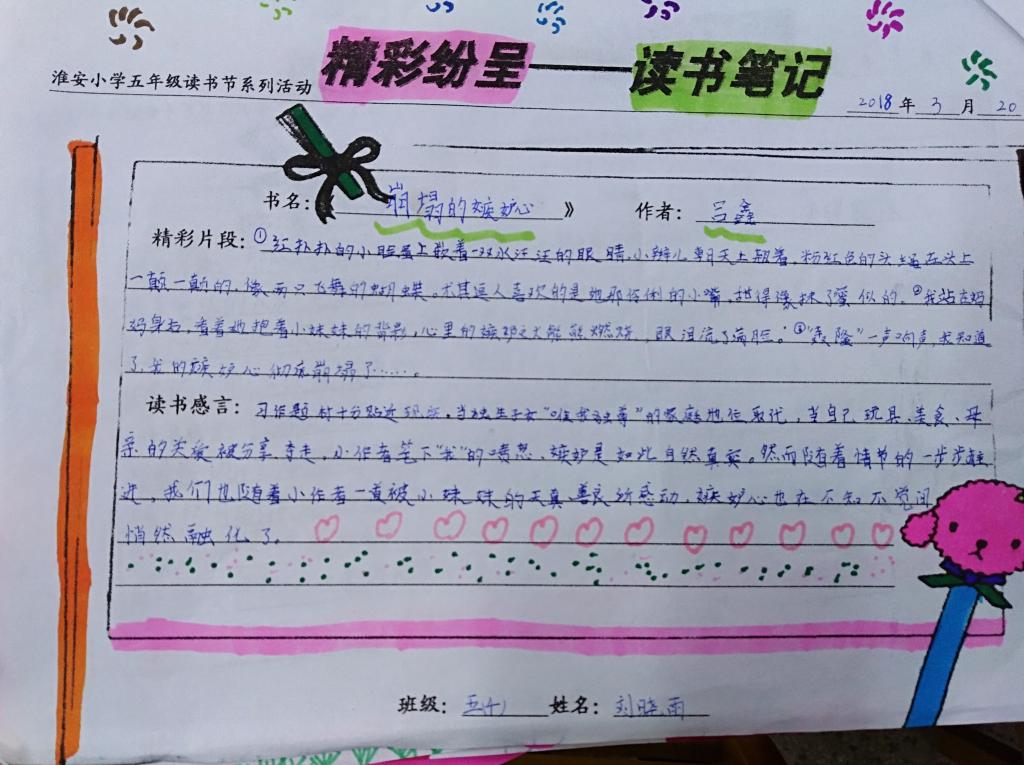 淮安小学五年级读书节系列活动 精彩纷呈——读书笔记
2018年3月20
书名：崩塌的嫉妒心》 作者：吕鑫
精彩片段：①红扑扑的小脸蛋上嵌着一双水汪汪的眼睛，小辫儿朝天上翘着，粉红色的头绳在头上
一颠一颠的，像两只飞舞的蝴蝶。尤其逗人喜欢的是她那伶俐的小嘴，甜得像抹了蜜似的。②我站在妈
妈身后，看着她抱着小妹妹的背影，心里的嫉妒之火熊熊燃烧，眼泪流了满脸。③“轰隆”一声响声，我知道
了，我的嫉妒心彻底崩塌了……。
读书感言：习作题材十分贴近现实。当独生子女“唯我独尊”的家庭地位取代，当自己玩具、美食、母
亲的关爱被分享 夺走，小作者笔下“我”的愤怒、嫉妒是如此自然真实。然而随着情节的一步步推
进，我们也随着小作者一道被小妹妹的天真、善良所感动，嫉妒心也在不知不觉间
悄然融化了。
班级：五(4) 姓名：刘晓雨